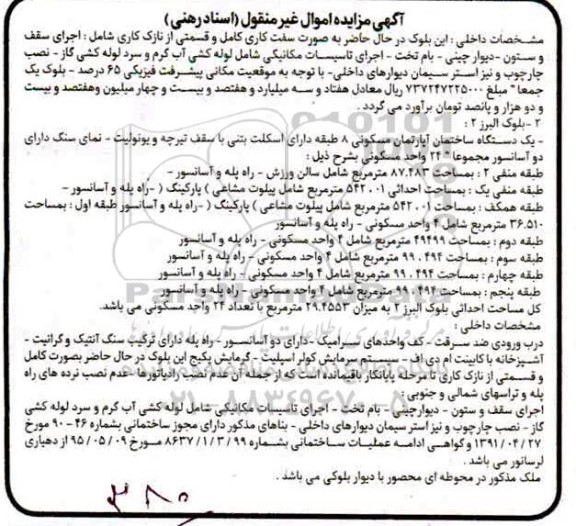 آگهی مزایده اموال غیر منقول (اسناد رهنی)
مشخصات داخلی : این بلوک در حال حاضر به صورت سفت کاری کامل و قسمتی از نازک کاری شامل : اجرای سقف
و ستون -دیوار چینی - بام تخت - اجرای تاسیسات مکانیکی شامل لوله کشی آب گرم و سرد لوله کشی گاز - نصب
چارچوب و نیز استر سیمان دیوارهای داخلی- با توجه به موقعیت مکانی پیشرفت فیزیکی ۶۵ درصد - بلوک یک
جمعا" مبلغ ۷۳۷۲۴۷۲۲۵۰۰۰ ریال معادل هفتاد و سه میلیارد و هفتصد و بیست و چهار میلیون وهفتصد و بیست
و دو هزار و پانصد تومان برآورد می گردد .
۲ -بلوک البرز ۲ :
- یک دستگاه ساختمان آپارتمان مسکونی ۸ طبقه دارای اسکلت بتنی با سقف تیرچه و یونولیت - نمای سنگ دارای
دو آسانسور مجموعا" ۲۴ واحد مسکونی بشرح ذیل :
طبقه منفی ۲ : بمساحت ۸۷.۴۸۳ مترمربع شامل سالن ورزش - راه پله و آسانسور-
طبقه منفی یک : بمساحت احداثی ۵۴۲۰۰۱ مترمربع شامل پیلوت مشاعی ) پارکینگ ( -راه پله و آسانسور -
طبقه همکف : بمساحت ۵۴۲۰۰۱ مترمربع شامل پیلوت مشاعی ) پارکینگ ( -راه پله و آسانسور طبقه اول : بمساحت
۳۶.۵۱۰ مترمربع شامل ۴ واحد مسکونی - راه پله و آسانسور
طبقه دوم : بمساحت ۴۹۴۹۹ مترمربع شامل ۴ واحد مسکونی - راه پله و آسانسور
طبقه سوم : بمساحت ۴۹۴ . ۹۹ مترمربع شامل ۴ واحد مسکونی - راه پله و آسانسور
طبقه چهارم : بمساحت ۴۹۴ . ۹۹ مترمربع شامل ۴ واحد مسکونی - راه پله و آسانسور
طبقه پنجم : بمساحت ۴۹۴ . ۹۹ مترمربع شامل ۴ واحد مسکونی - راه پله و آسانسور
کل مساحت احداثی بلوک البرز ۲ به میزان ۲۹.۴۵۵۳ مترمربع با تعداد ۲۴ واحد مسکونی می باشد.
مشخصات داخلی :
درب ورودی ضد سرقت - کف واحدهای سرامیک - دارای دو آسانسور - راه پله دارای ترکیب سنگ آنتیک و گرانیت -
آشپزخانه با کابینت ام دی اف - سیستم سرمایش کولر اسپلیت - گرمایش پکیج این بلوک در حال حاضر بصورت کامل
و قسمتی از نازک کاری تا مرحله پایانکار باقیمانده است که از جمله آن عدم نصب رادیاتورها- عدم نصب نرده های راه
پله و تراسهای شمالی و جنوبی :
اجرای سقف و ستون - دیوارچینی - بام تخت - اجرای تاسیسات مکانیکی شامل لوله کشی آب گرم و سرد لوله کشی
گاز - نصب چارچوب و نیز استر سیمان دیوارهای داخلی - بناهای مذکور دارای مجوز ساختمانی بشماره ۴۶-۹۰ مورخ
۱۳۹۱/۰۴/۲۷ و گواهی ادامه عملیات ساختمانی بشماره ۸۶۳۷/۱/۳/۹۹ مورخ ۹۵/۰۵/۰۹ از دهیاری
لرسانور می باشد .
ملک مذکور در محوطه ای محصور با دیوار بلوکی می باشد .
ParsNamadData
۰۲۱-۸۸۳۴۹۶۷۰-۵